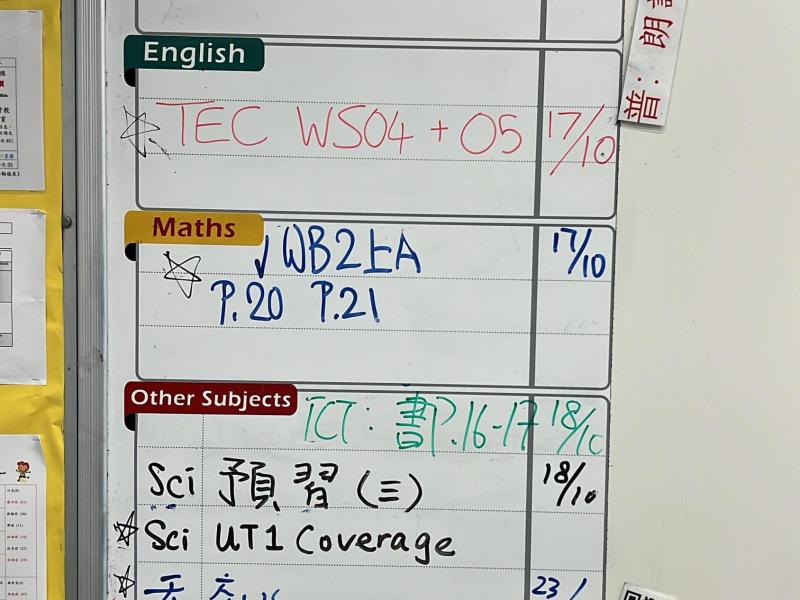 普：朗
English
TEC WS04 + 05 17/10
Maths
WB2上A 17/10
P.20 P.21
Other Subjects
ICT：書P.16-17 18/10
Sci 預習（三） 18/10
Sci UT1 Coverage
23/